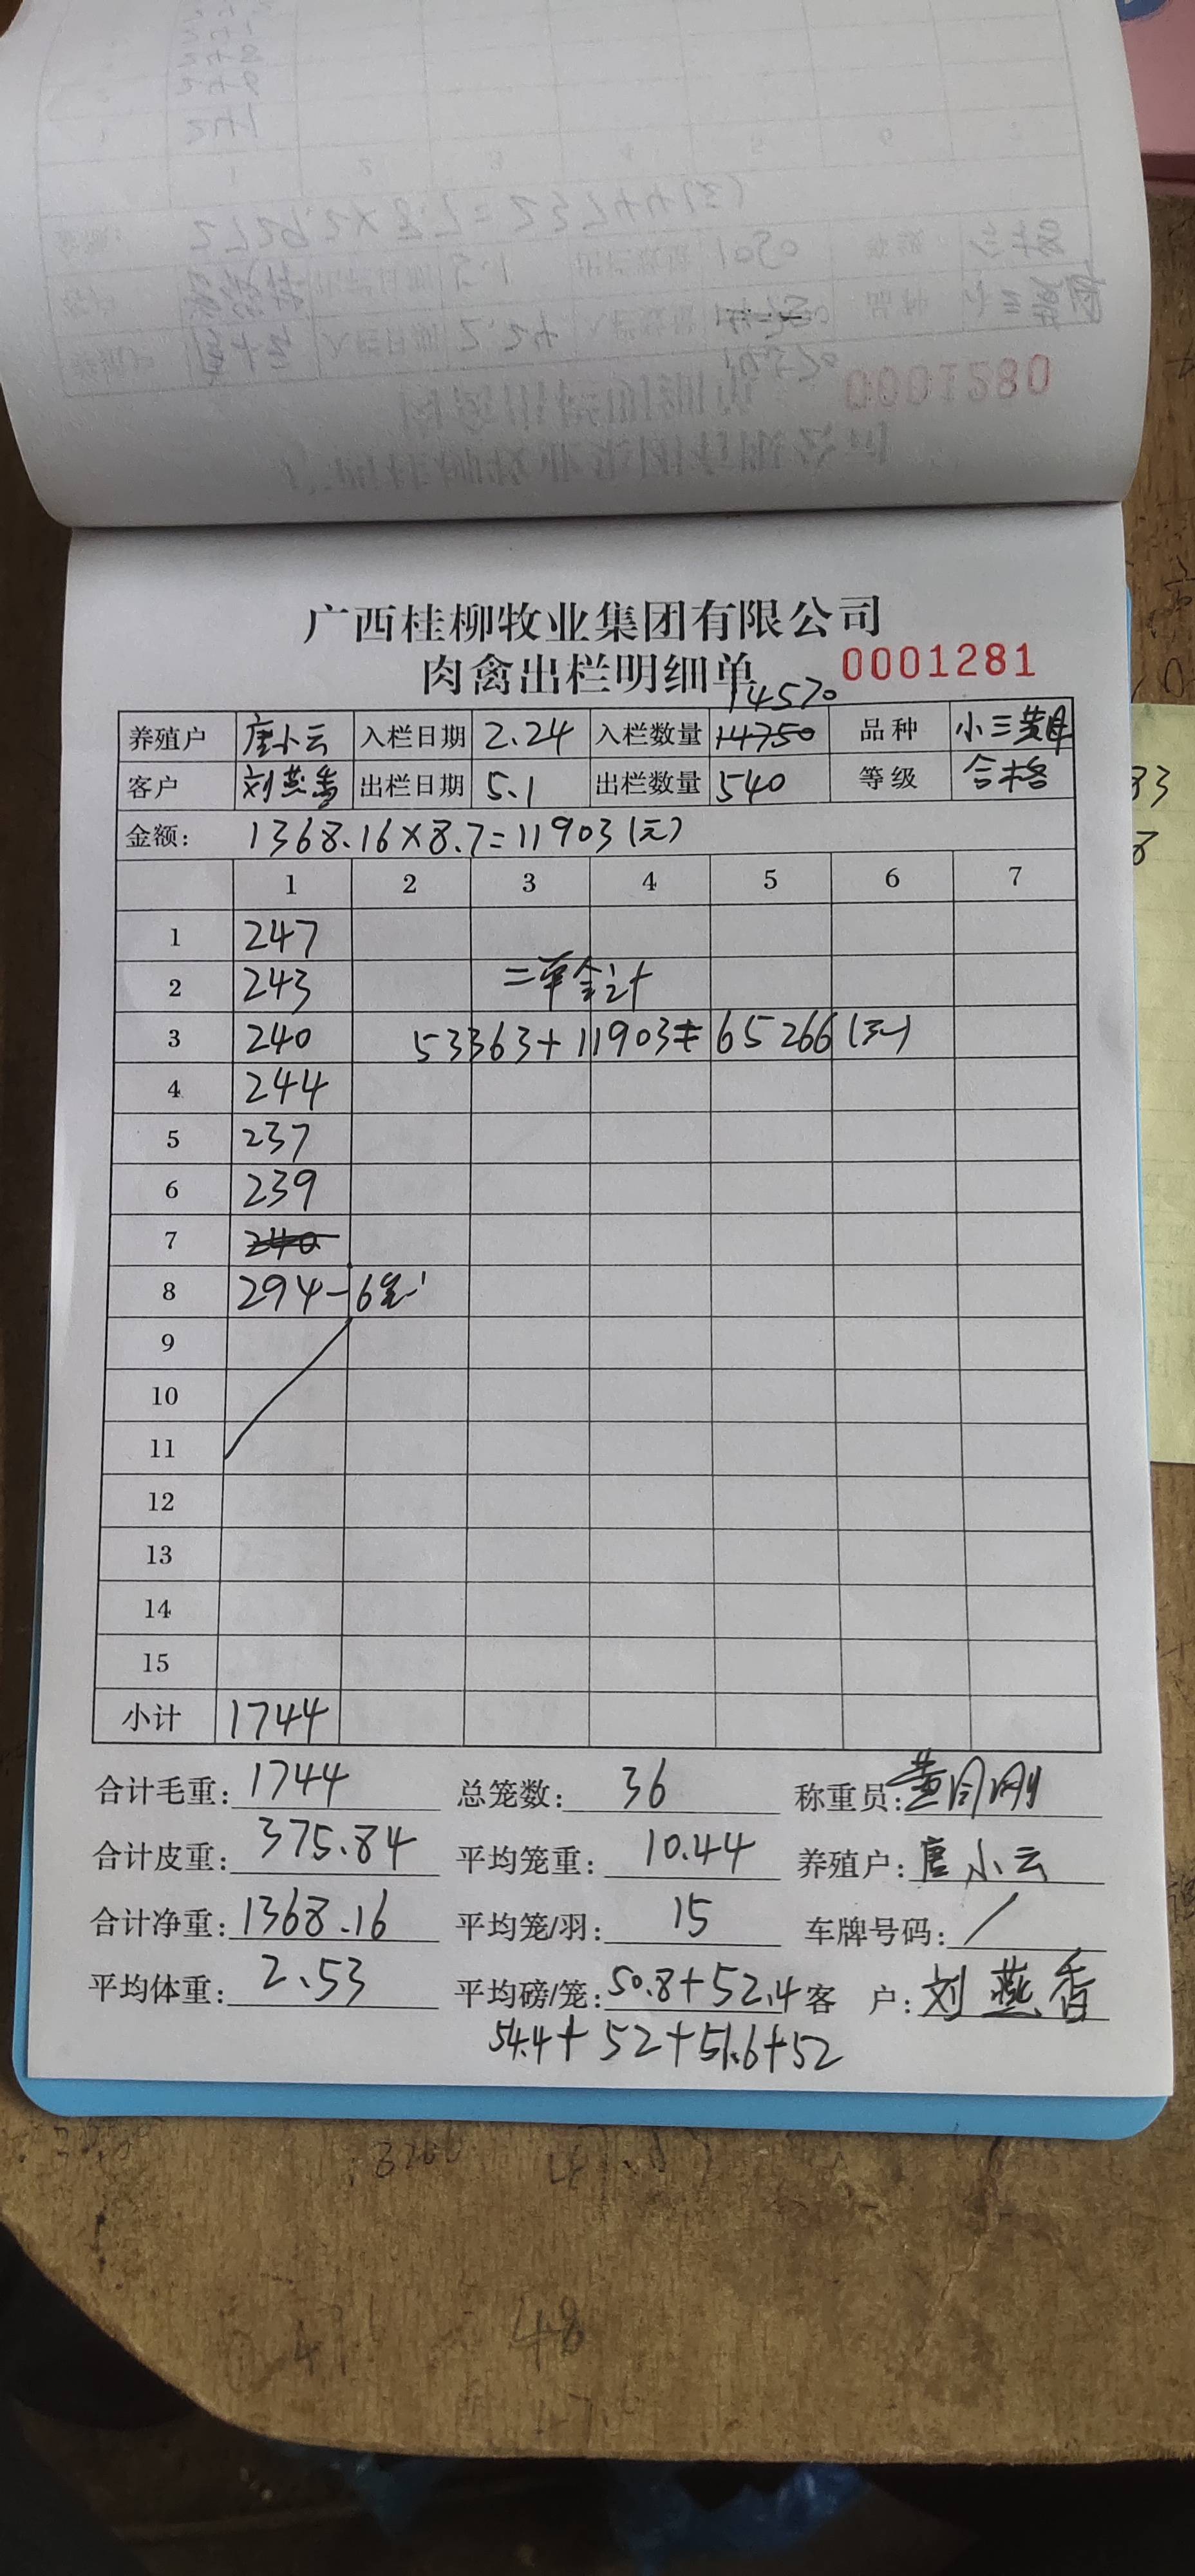 广西桂柳牧业集团有限公司
肉禽出栏明细单 0001281
14570
养殖户 唐小云 入栏日期 2.24 入栏数量 14750 品种 小三黄母
客户 刘燕香 出栏日期 5.1 出栏数量 540 等级 合格
金额: 1368.16×8.7=11903(元)
1 2 3 4 5 6 7
1 247
2 243 二单合计
3 240 53363+11903=65266(元)
4 244
5 237
6 239
7 240
8 294-6笼
9
10
11
12
13
14
15
小计 1744
合计毛重: 1744 总笼数: 36 称重员: 黄
合计皮重: 375.84 平均笼重: 10.44 养殖户: 唐小云
合计净重: 1368.16 平均笼/羽: 15 车牌号码: /
平均体重: 2.53 平均磅/笼: 50.8+52.4 客 户: 刘燕香
54.4+52+51.6+52
0001280